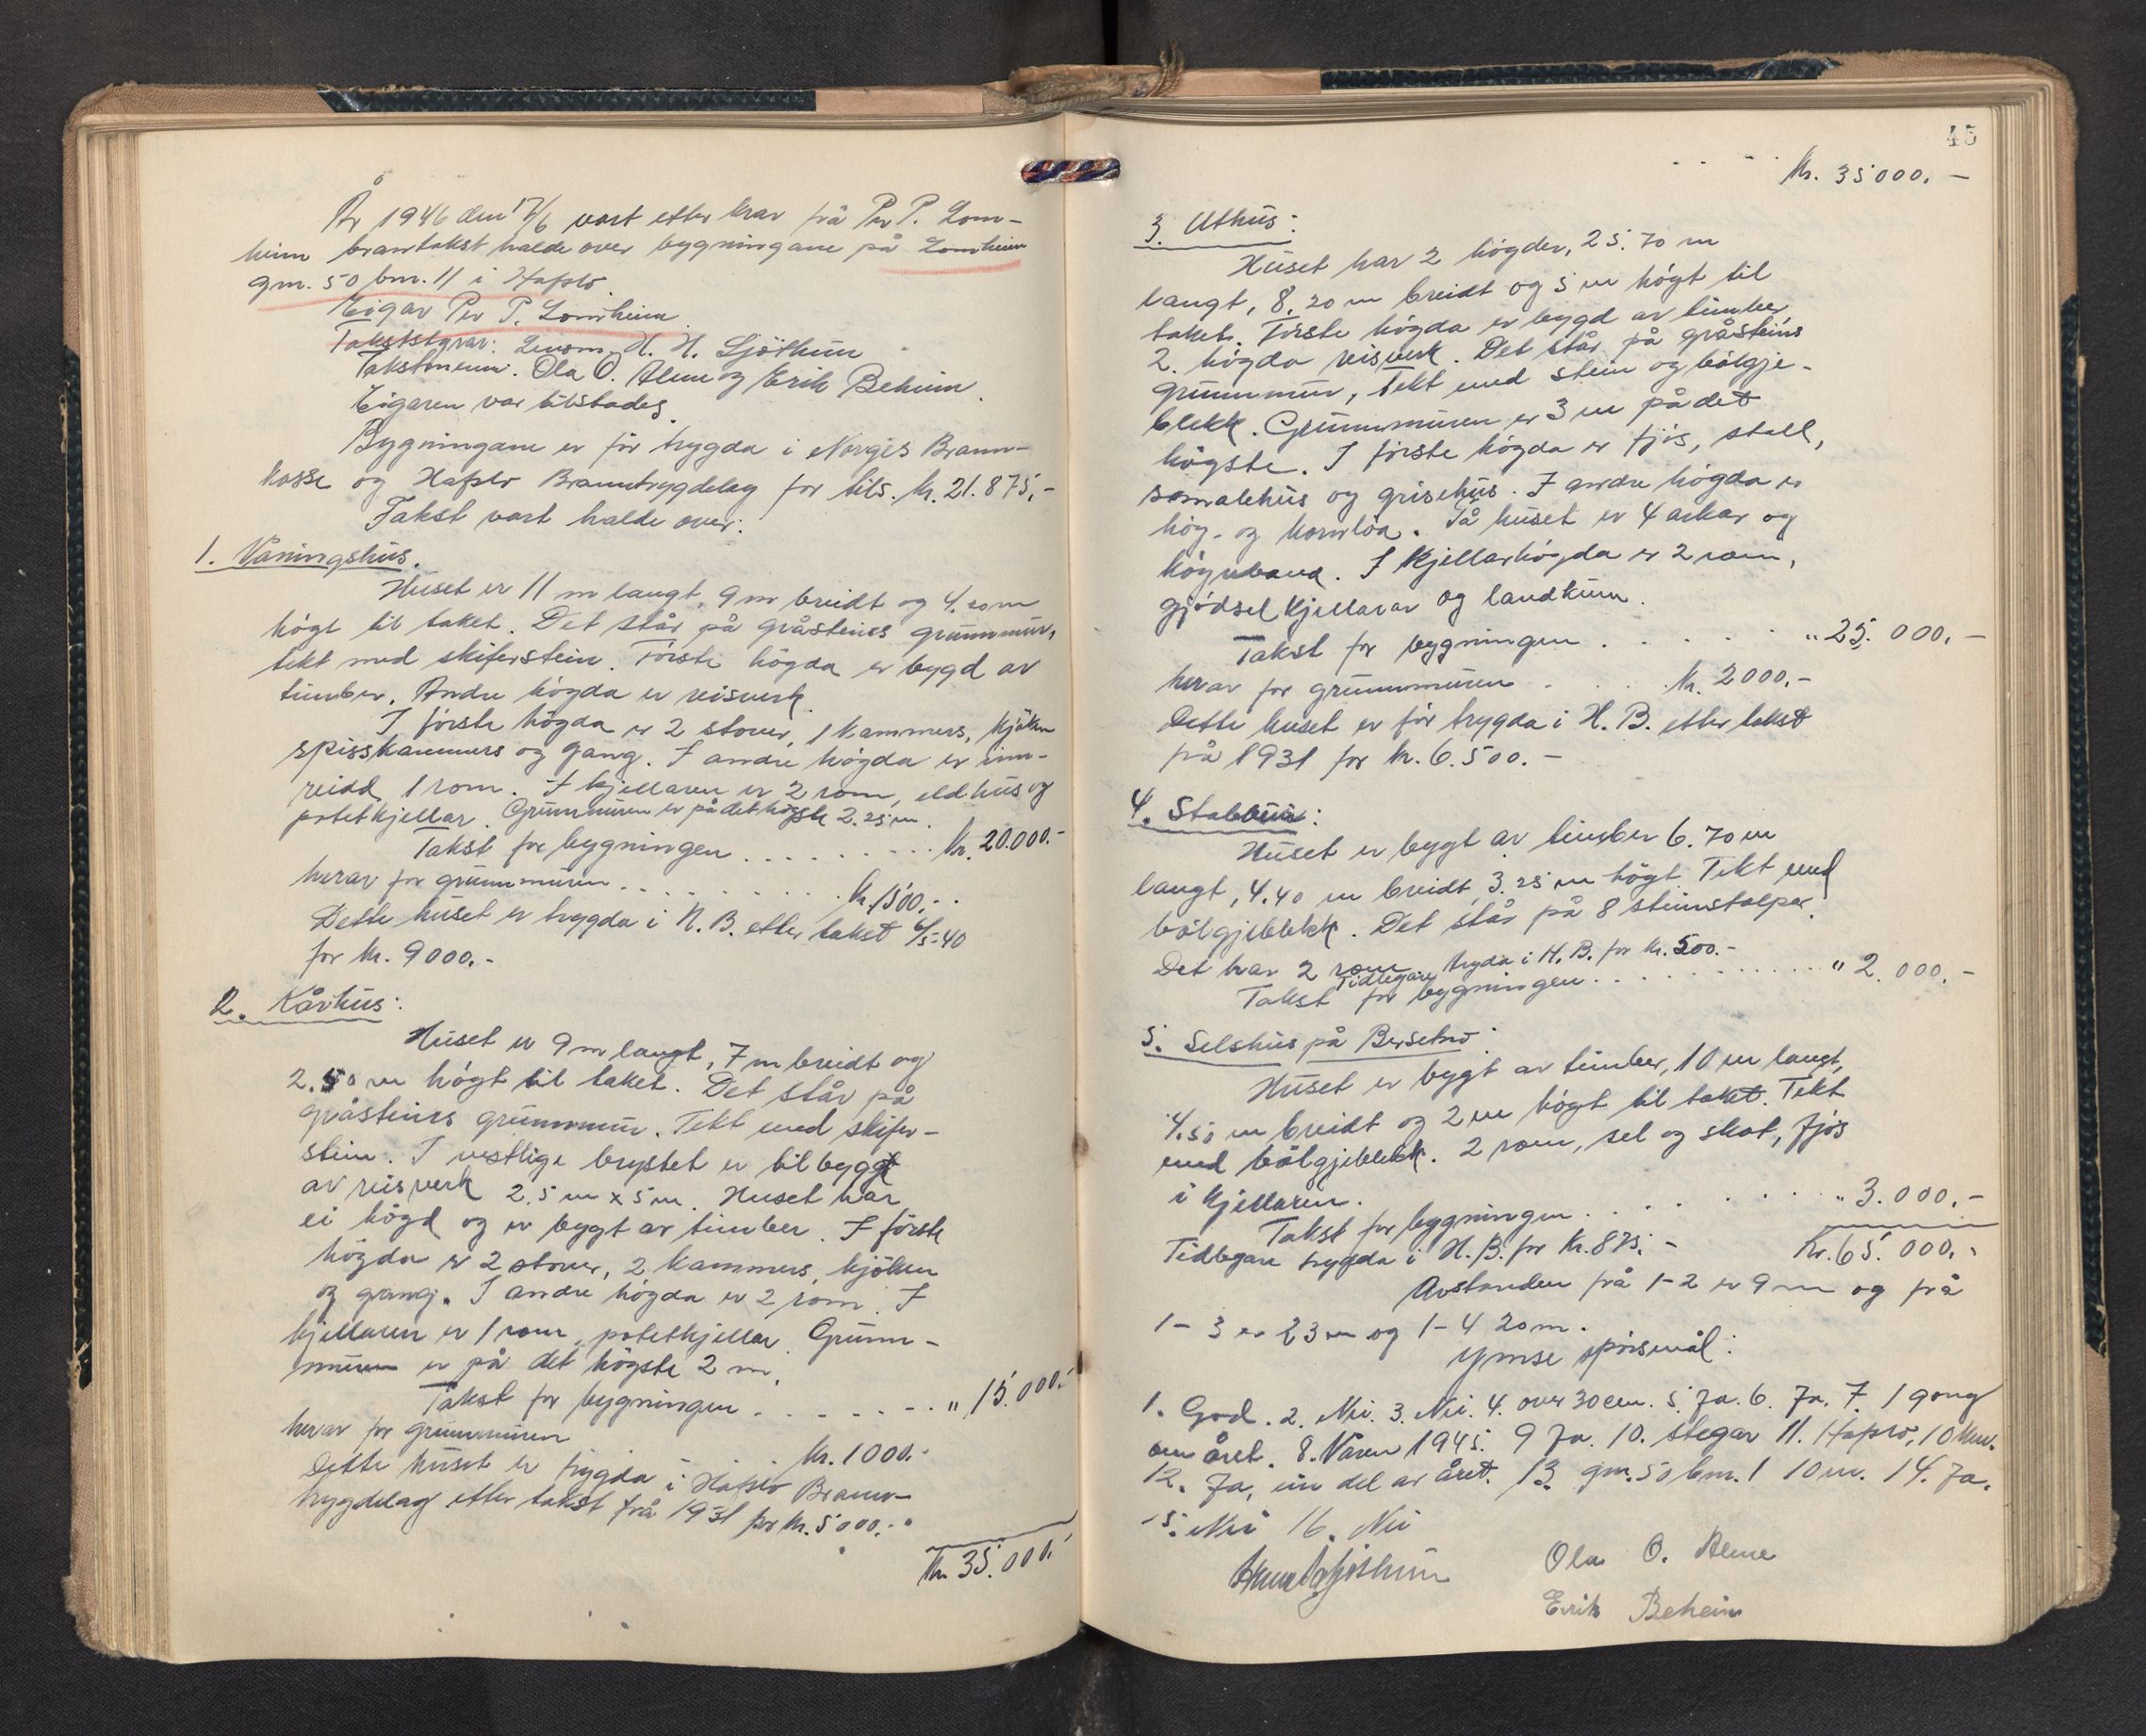 År 1946 den 17/6 vart etter krav frå Per P. Lom-
heim branntakst halde over bygningane på Lomheim
gnr. 50 bnr. 11 i Hafslo.
Eigar Per P. Lomheim
Takststyrar: Lensm. H. H. Sjöthun
Takstmenn: Ola O. Alme og Erik Beheim.
Eigaren var tilstades.
Bygningane er för trygda i Norges Brann-
kasse og Hafslo Branntrygdelag for tils. kr. 21.875,-
Takst vart halde over:
1. Våningshus.
Huset er 11 m langt, 9 m breidt og 4.20 m
högt til taket. Det står på gråsteins grunnmur,
tekt med skiferstein. Förste högda er bygd av
timber. Andre högda er reisverk.
I förste högda er 2 stover, 1 kammers, kjöken
spisskammers og gang. I andre högda er inn-
reidd 1 rom. I kjellaren er 2 rom, eldhus og
potetkjellar. Grunnmuren er på det högste 2.25 m.
Takst for bygningen . . . . . . . . . kr. 20.000.-
herav for grunnmuren . . . . . . . . . kr. 1500.-
Dette huset er trygda i N. B. etter takst 6/5-40
for kr. 9000.-
2. Kårhus:
Huset er 9 m langt, 7 m breidt og
2.50 m högt til taket. Det står på
gråsteins grunnmur. Tekt med skifer-
stein. I vestlige brystet er tilbygg
av reisverk 2.5 m x 5 m. Huset har
ei högd og er bygt av timber. I förste
högda er 2 stover, 2 kammers, kjöken
og gang. I andre högda er 2 rom. I
kjellaren er 1 rom, potetkjellar. Grunn-
muren er på det högste 2 m.
Takst for bygningen . . . . . . . " 15.000.-
herav for grunnmuren kr. 1000.-
Dette huset er trygda i Hafslo Brann-
trygdelag etter takst frå 1931 for kr. 5000.-
Kr. 35.000.-
45
. . . . Kr. 35000.-
3. Uthus:
Huset har 2 högder, 25.70 m
langt, 8.20 m breidt og 5 m högt til
taket. Förste högda er bygd av timber,
2. högda reisverk. Det står på gråsteins
grunnmur, tekt med stein og bölgje-
blekk. Grunnmuren er 3 m på det
högste. I förste högda er fjös, stall,
smalehus og grisehus. I andre högda er
höy- og kornlöa. På huset er 4 arkar og
I kjellarhögda er 2 rom,
gjödselkjellarar og landkum.
Takst for bygningen . . . . . " 25.000.-
herav for grunnmuren . . . kr. 2000.-
Dette huset er för trygda i H. B. etter takst
på 1931 for kr. 6.500.-
4. Stabbur:
Huset er bygt av timber 6.70 m
langt, 4.40 m breidt, 3.25 m högt. Tekt med
bölgjeblekk. Det står på 8 steinstolpar.
Det har 2 rom. Tidlegare trygda i H. B. for kr. 500.-
Takst for bygningen . . . . . . . . . " 2.000.-
5. Selshus på Bersetno:
Huset er bygt av timber, 10 m langt,
4.50 m breidt og 2 m högt til taket. Tekt
med bölgjeblekk. 2 rom, sel og skot, fjös
i kjellaren.
Takst for bygningen . . . . . . . " 3.000.-
Tidlegare trygda i H. B. for kr. 875.- Kr. 65.000.-
Avstanden frå 1-2 er 9 m og frå
1-3 er 23 m og 1-4 20 m.
Ymse spörsmål:
1. God. 2. Nei. 3. Nei. 4. over 30 cm. 5. Ja. 6. Ja. 7. 1 gong
om året. 8. Våren 1945. 9 Ja. 10. stegar 11. Hafslo, 10 km.
12. Ja, ein del av året. 13. gnr. 50 bnr. 1 10 m. 14. Ja.
15. Nei 16. Nei
Ola O. Alme
Erik Beheim